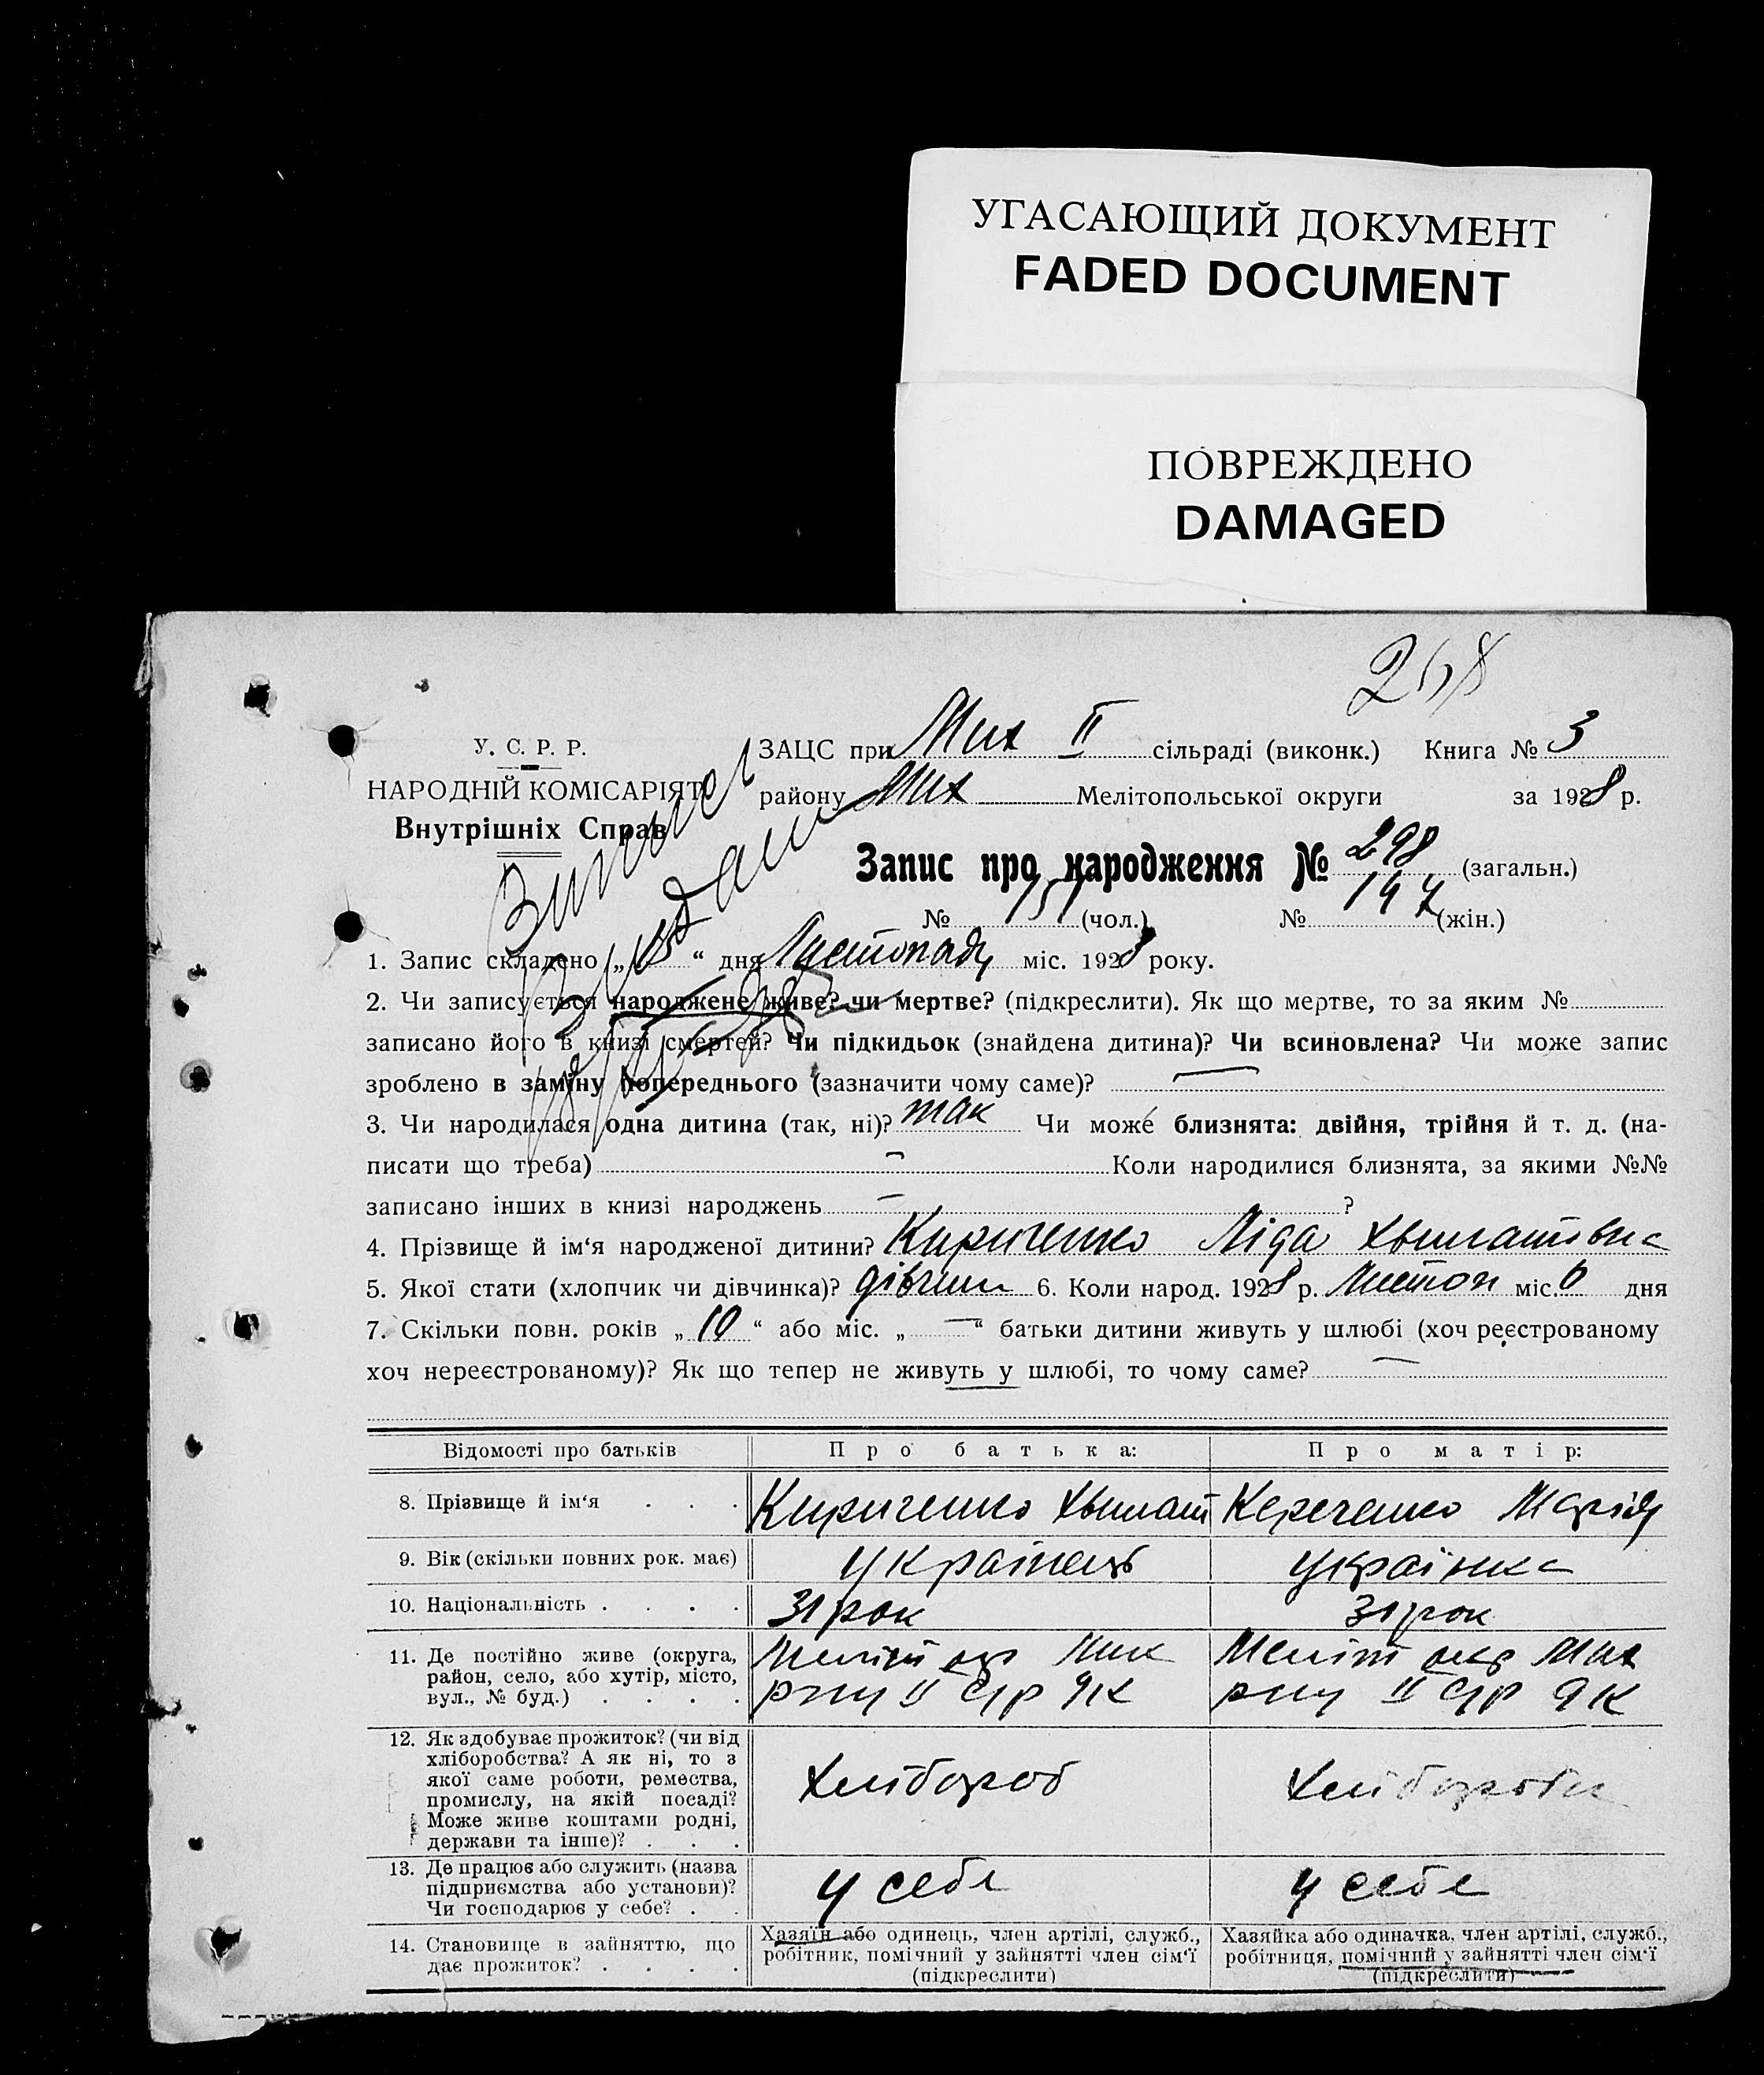 УГАСАЮЩИЙ ДОКУМЕНТ
FADED DOCUMENT
ПОВРЕЖДЕНО
DAMAGED
У. С. Р. Р.
НАРОДНІЙ КОМІСАРІЯТ
Внутрішніх Справ
ЗАЦС при Мих II сільраді (виконк.) Книга № 3
району Мих Мелітопольської округи за 1928 р.
Запис про народження № 298 (загальн.)
№ 151 (чол.) № 147 (жін.)
1. Запис складено „ “ дня Листопаду міс. 1928 року.
2. Чи записується народжене живе? чи мертве? (підкреслити). Як що мертве, то за яким №
записано його в книзі смертей? Чи підкидьок (знайдена дитина)? Чи всиновлена? Чи може запис
зроблено в заміну попереднього (зазначити чому саме)? —
3. Чи народилася одна дитина (так, ні)? так Чи може близнята: двійня, трійня й т. д. (на-
писати що треба) — Коли народилися близнята, за якими №№
записано інших в книзі народжень — ?
4. Прізвище й ім‘я народженої дитини? Кириченко Ліда Хвилатівна
5. Якої стати (хлопчик чи дівчинка)? дівчин 6. Коли народ. 1928 р. Листоп міс. 6 дня
7. Скільки повн. років „ 10 “ або міс. „ — “ батьки дитини живуть у шлюбі (хоч реєстрованому
хоч нереєстрованому)? Як що тепер не живуть у шлюбі, то чому саме? —
Відомості про батьків Про батька: Про матір:
8. Прізвище й ім‘я . . . Кириченко Хвилат Кериченко Марія
9. Вік (скільки повних рок. має) українець українка
10. Національність . . . . 31 рок 31 рок
11. Де постійно живе (округа,
район, село, або хутір, місто,
вул., № буд.) . . . .
Меліт окр Мих
рну II С/р
Меліт окр Мих
рну II С/р
12. Як здобуває прожиток? (чи від
хліборобства? А як ні, то з
якої саме роботи, ремества,
промислу, на якій посаді?
Може живе коштами родні,
держави та інше)? . . .
Хлібороб Хлібороби
13. Де працює або служить (назва
підприємства або установи)?
Чи господарює у себе? . .
у себе у себе
14. Становище в зайняттю, що
дає прожиток? . . . .
Хазяїн або одинець, член артілі, служб.,
робітник, помічний у зайнятті член сім‘ї
(підкреслити)
Хазяйка або одиначка, член артілі, служб.,
робітниця, помічний у зайнятті член сім‘ї
(підкреслити)